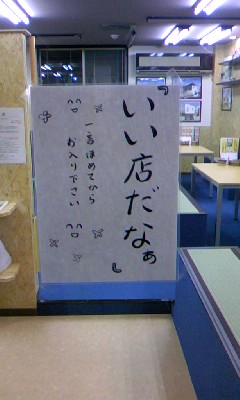 『いい店だなぁ』
一言ほめてから
お入り下さい